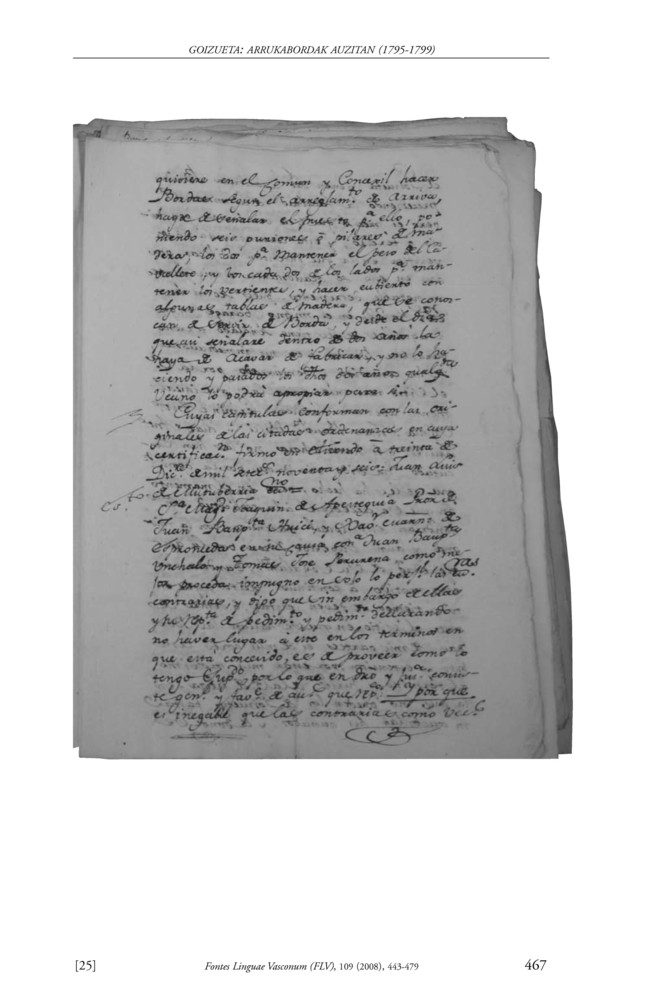 GOIZUETA: ARRUKABORDAK AUZITAN (1795-1799)
quisiere en el Comun y Concexil hacer
Bordas segun el arreglam.to de arriva,
haya de señalar el puesto p.a ello, po-
niendo seis punzones, o pilares de ma-
dera, los dos p.a mantener el peso del ca-
vallete, y con cada dos de los lados p.a man-
tener los vertientes, y hacer cubierto con
algunas tablas de madera, que se conoz-
can de servir de Borda, y desde el dia
que asi señalare dentro de dos años la
haya de acavar de fabricar, y no lo ha-
ciendo y pasados los dhos dos años qualq.a
vecino lo podra apropiar para si.
Cuyas capitulas conforman con las ori-
ginales de las citadas ordenanzas en cuya
certificac.n firmo en a treinta de
Dic.e de mil setec.s noventa y seis: Juan Anto
de Ellutuberria no
C.a Joaquin de Apestequia Pror de
Juan Baup.ta y
en su causa con.a Juan Baup.ta
y Tomas, Jose Perurena como me-
jor proceda impugno en todo lo
contrarias, y digo que sin embargo de ellas
y su de pedim.to y pedim.to declarando
no haver lugar a este en los terminos en
que esta concevido, es de proveer como lo
tengo Sup.do por lo que en dro y
te gen.l y por que
es inegable que las contrarias como vec.s
[25]
Fontes Linguae Vasconum (FLV), 109 (2008), 443-479
467